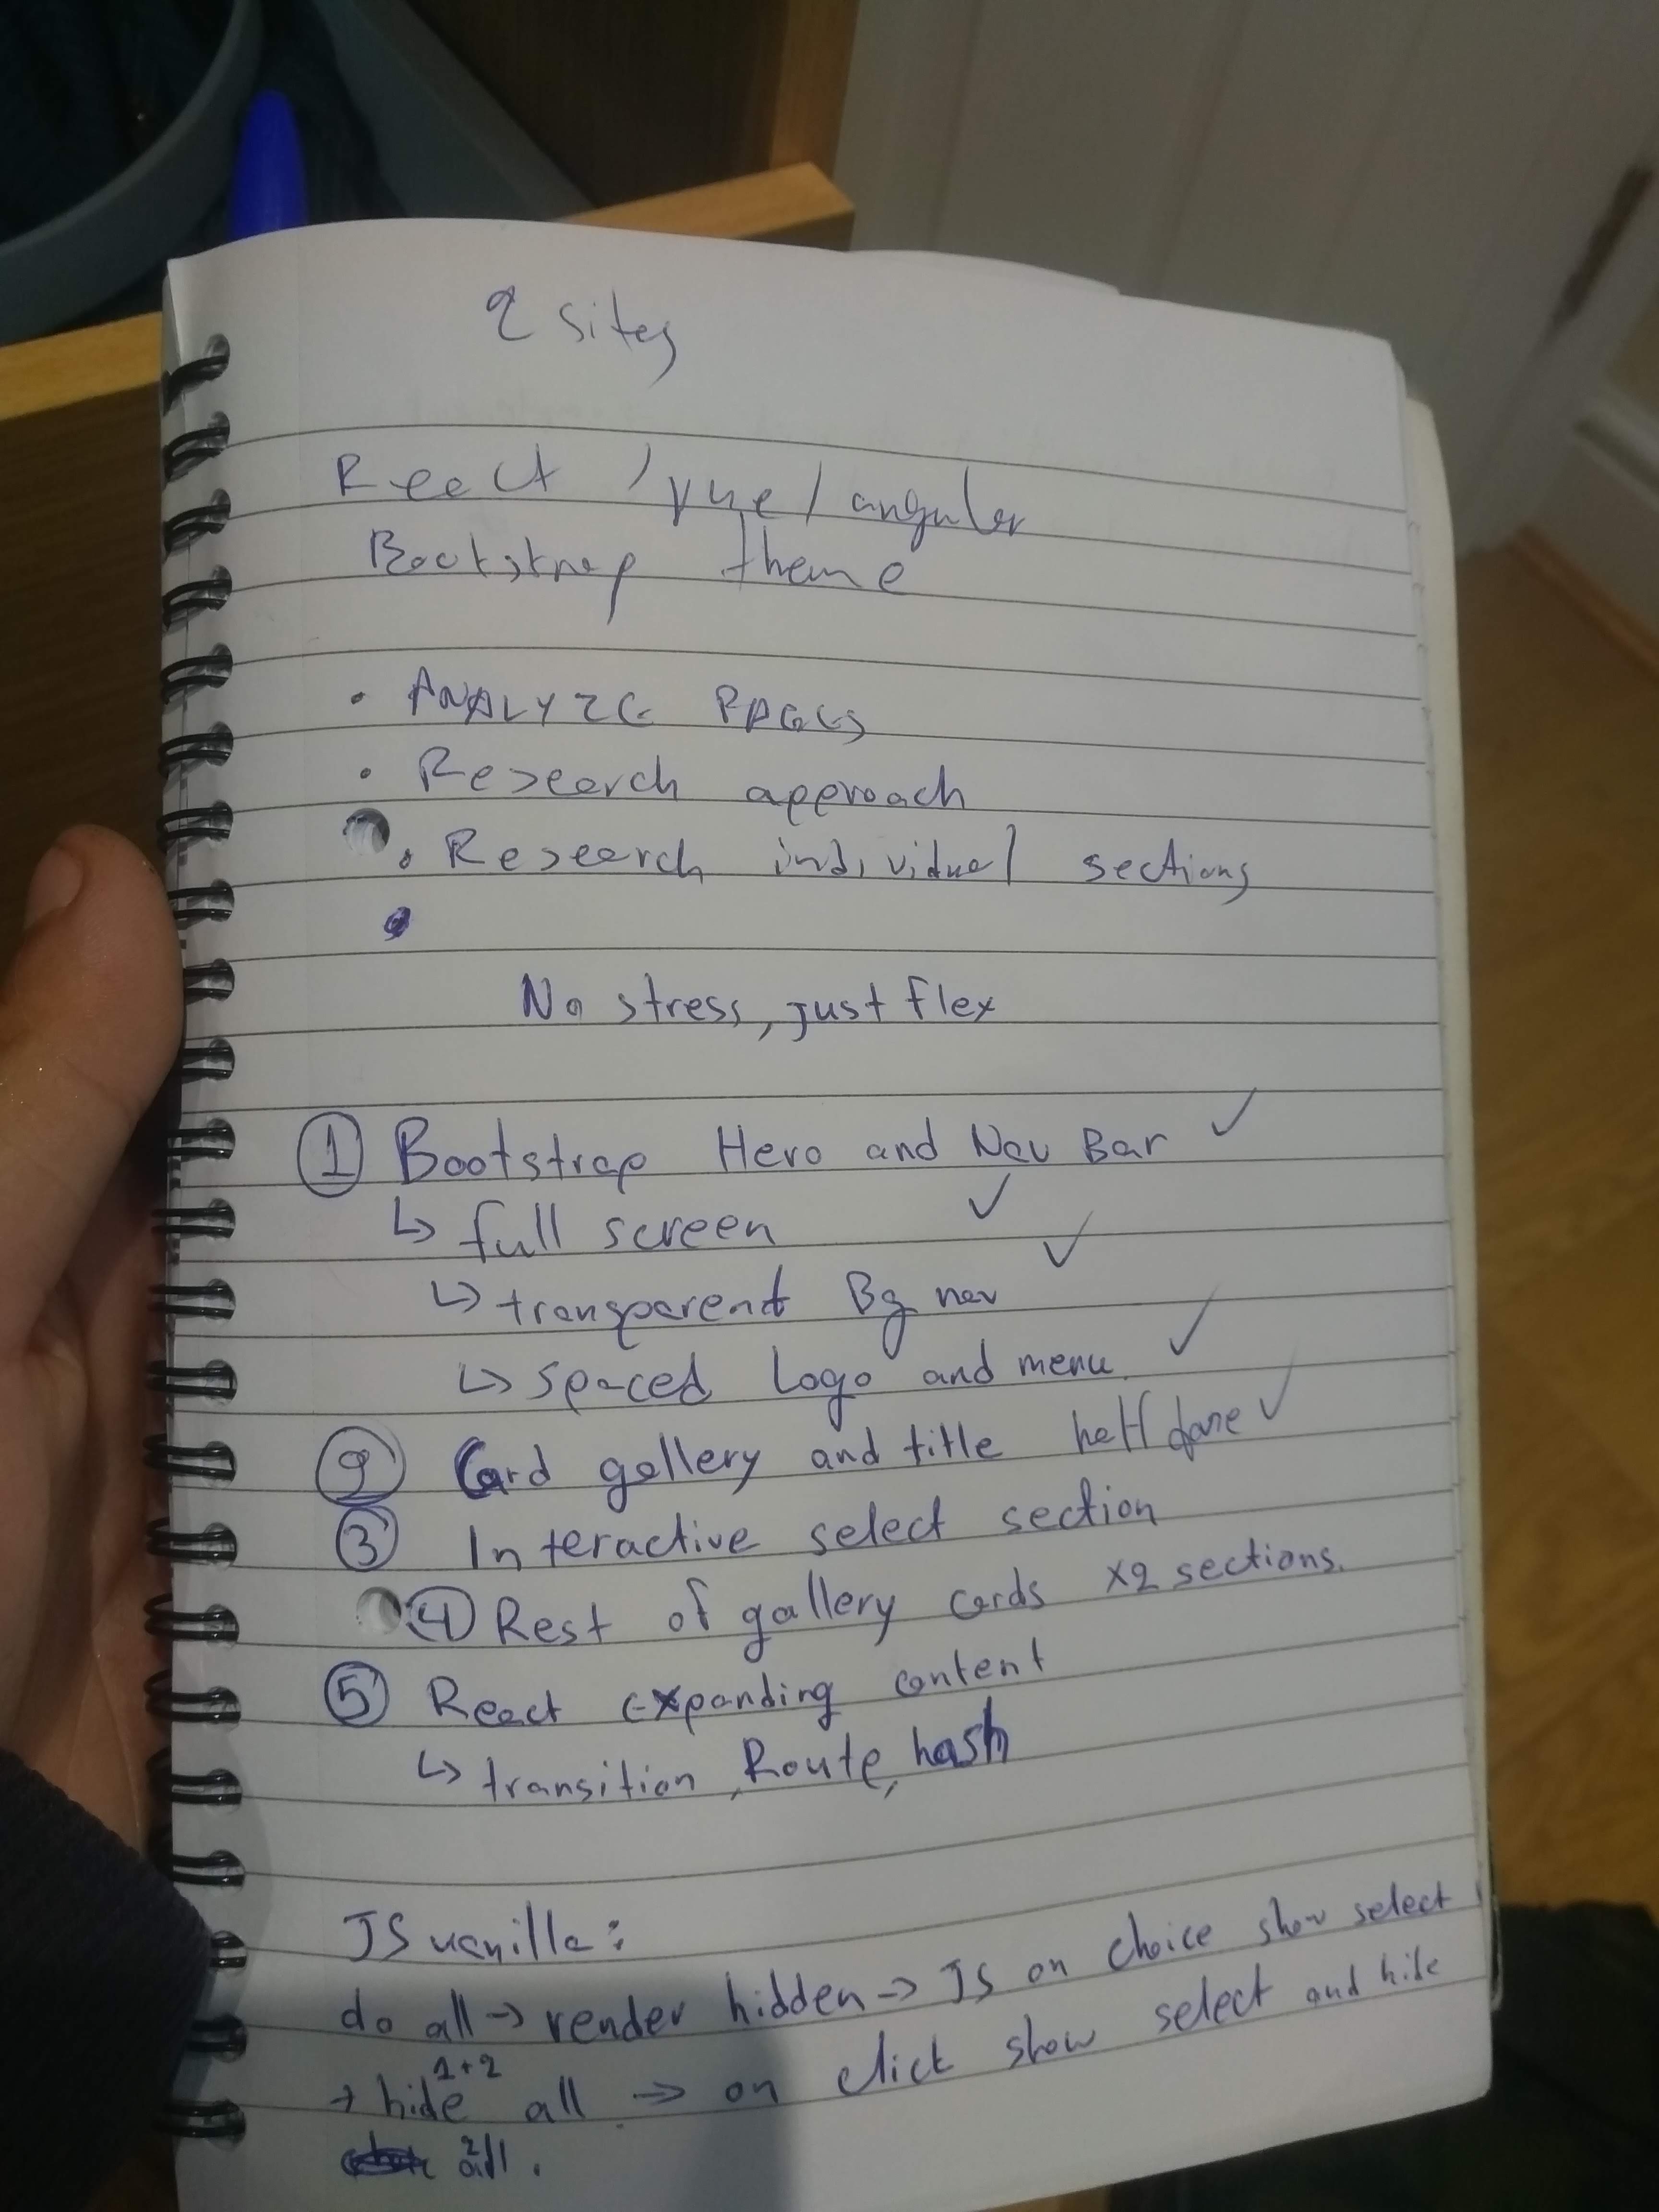 2 sites
React / vue / angular
Bootstrap theme
• ANALYZE PAGES
• Research approach
• Research individual sections
•
No stress, just flex
① Bootstrap Hero and Nav Bar ✓
↳ full screen ✓
↳ transparent Bg nav ✓
↳ spaced Logo and menu ✓
② Card gallery and title half done ✓
③ Interactive select section
④ Rest of gallery cards x2 sections.
⑤ React expanding content
↳ transition, Route, hash
JS vanilla:
do all → render hidden → JS on choice show select
→ hide 1+2 all → on click show select and hide
2 all.